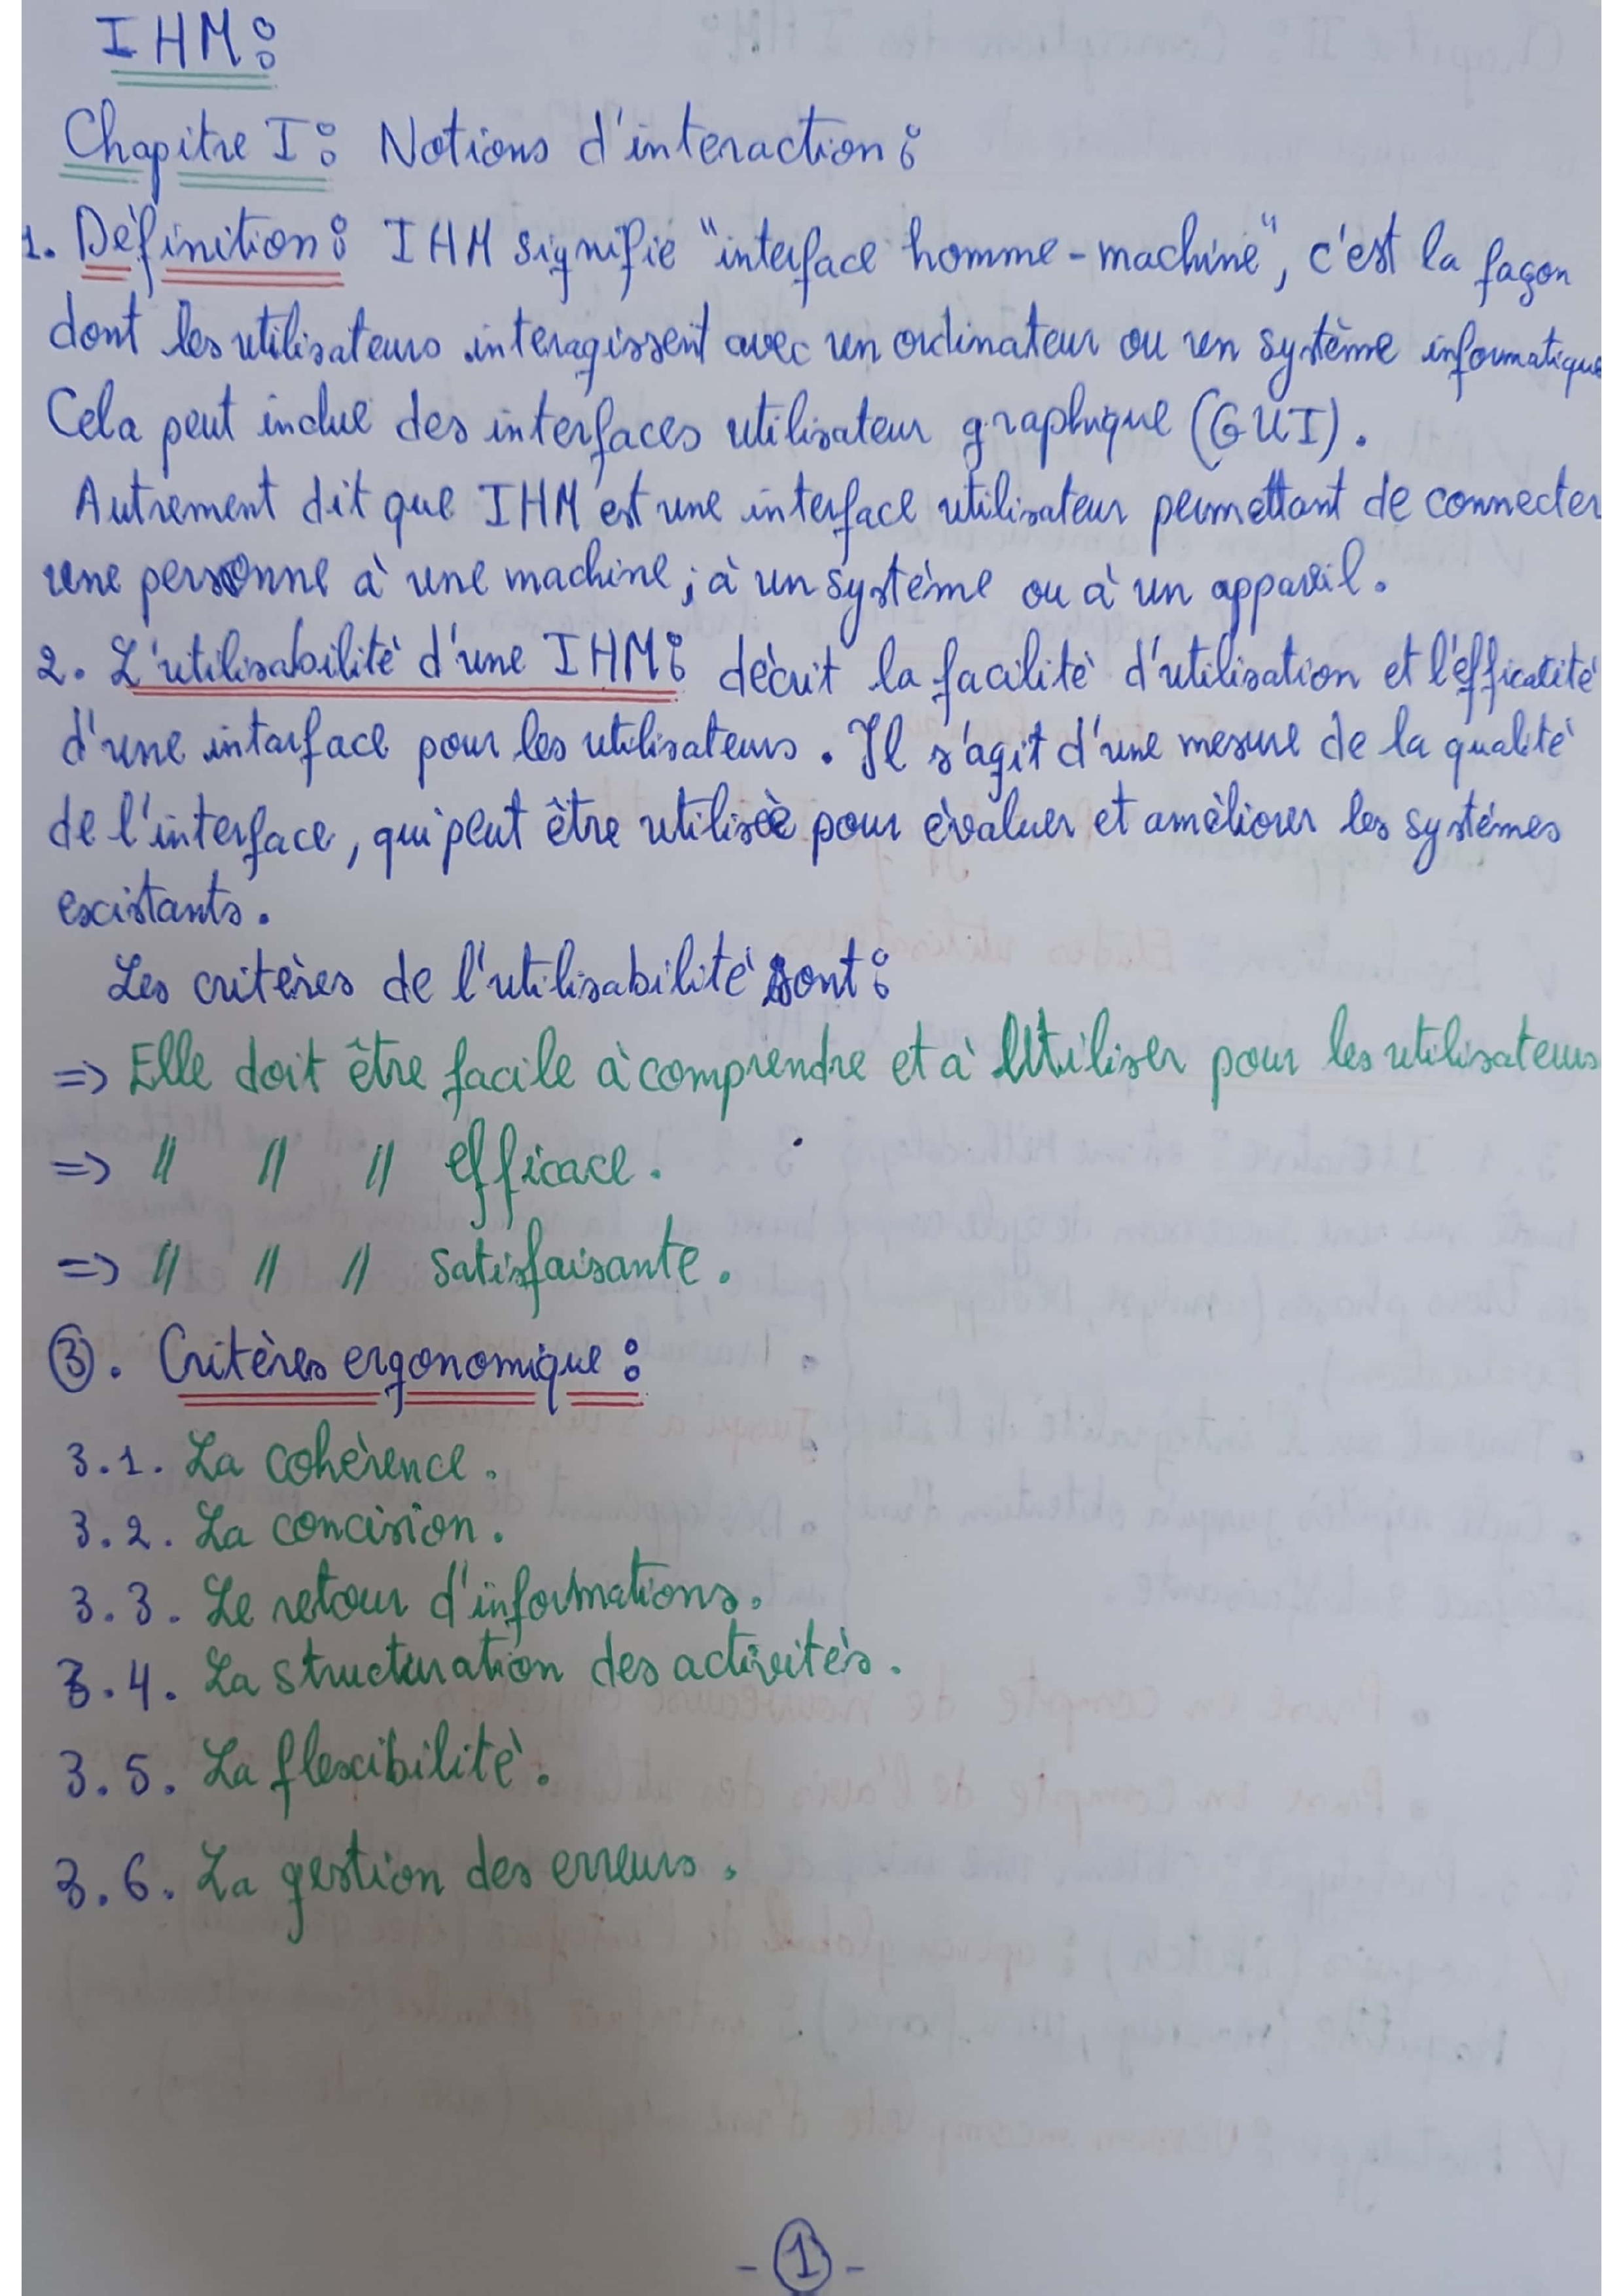 IHM:
Chapitre I: Notions d'interaction:
1. Définition: IHM signifie "interface homme-machine", c'est la façon
dont les utilisateurs interagissent avec un ordinateur ou un système informatique
Cela peut inclue des interfaces utilisateur graphique (GUI).
Autrement dit que IHM est une interface utilisateur permettant de connecter
une personne à une machine; à un système ou à un appareil.
2. L'utilisabilité d'une IHM: décrit la facilité d'utilisation et l'efficacité
d'une interface pour les utilisateurs. Il s'agit d'une mesure de la qualité
de l'interface, qui peut être utilisée pour évaluer et améliorer les systémes
existants.
Les critères de l'utilisabilité sont:
=> Elle doit être facile à comprendre et à Utiliser pour les utilisateurs
=> // // // efficace.
=> // // // satisfaisante.
3. Critères ergonomique:
3.1. La cohérence.
3.2. La concision.
3.3. Le retour d'informations.
3.4. La structuration des activités.
3.5. La flexibilité.
3.6. La gestion des erreurs.
- 1 -